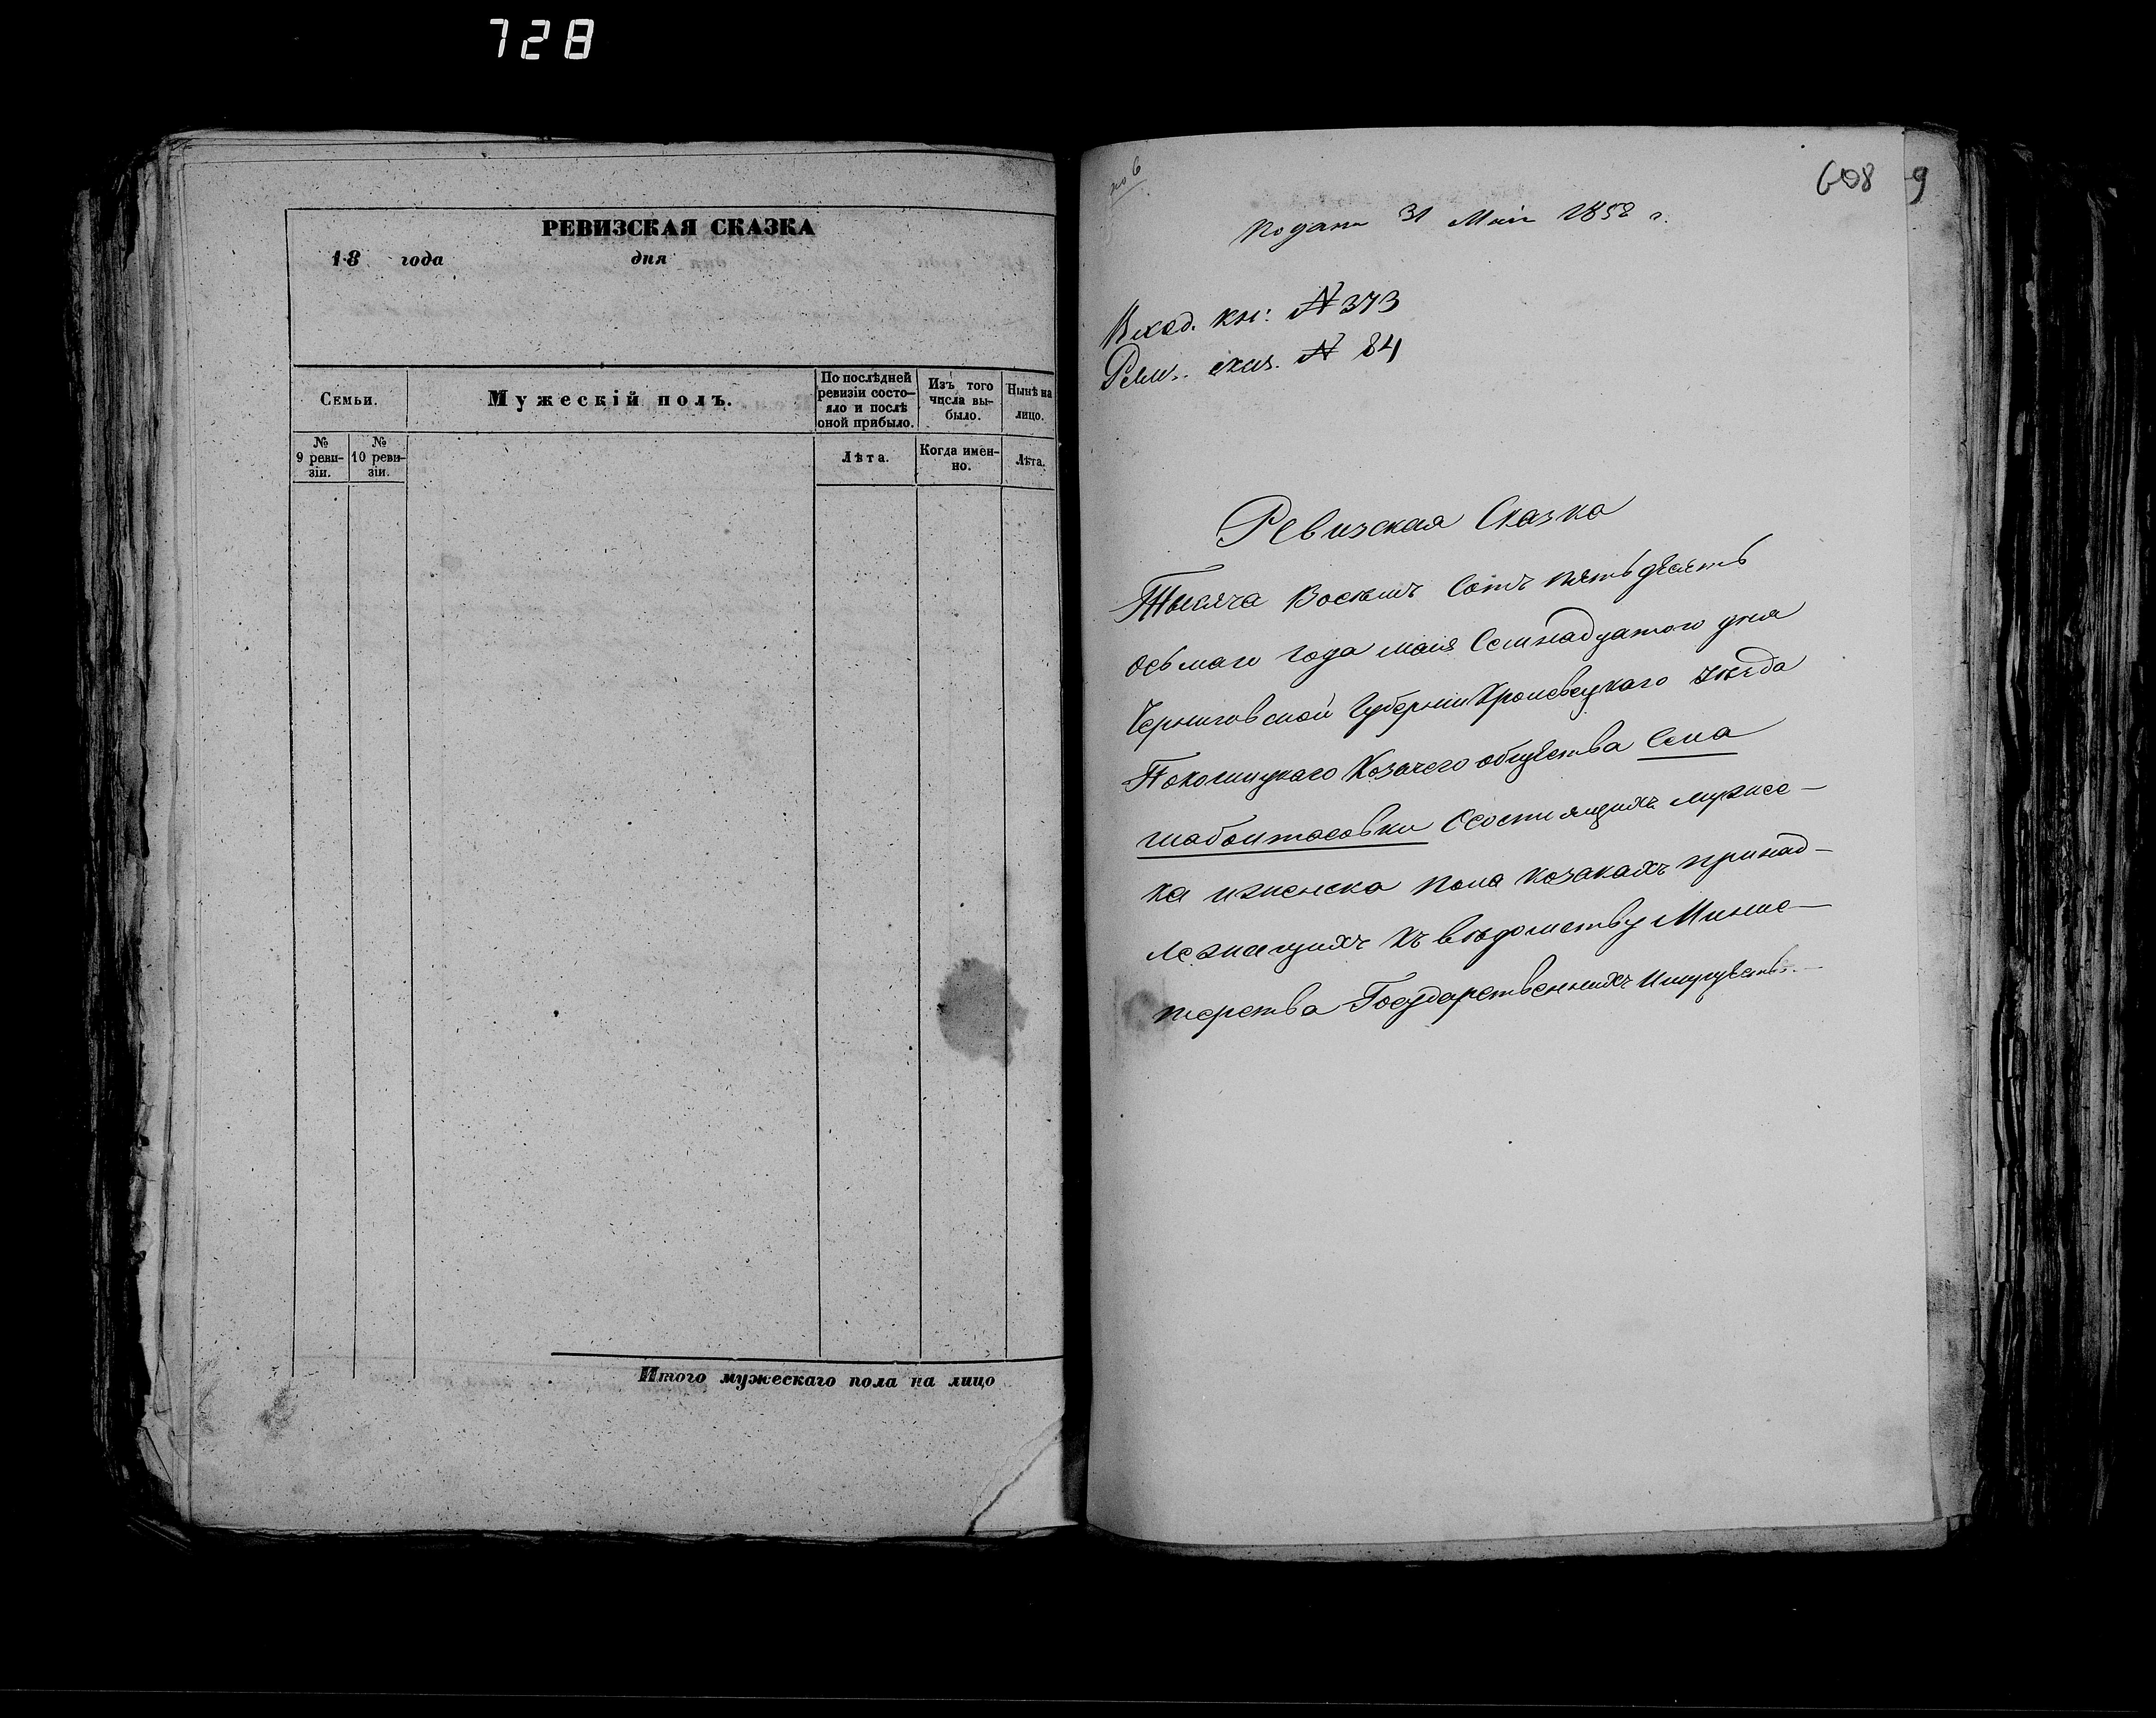 728
РЕВИЗСКАЯ СКАЗКА
18 года дня
Семьи.
Мужескій полъ.
По послѣдней ревизіи состо-
яло и послѣ
оной прибыло.
Изъ того
числа вы-
было.
Нынѣ на
лицо.
№
9 реви-
зіи.
№
10 реви-
зіи.
Лѣта.
Когда имен-
но.
Лѣта.
Итого мужескаго пола на лицо
№ 6
608 9
Подана 31 Маія 1858 г.
Вход. кн: № 373
Рев. сказ. № 84
Ревизская Сказка
Тысяча Восемь Сотъ пятьдесять
осьмаго года маія Семнадцатого дня
Черниговской Губерніи Кролевецкаго уезда
Покошицкаго Козачего общества Села
шабалтасовки Осостоящихъ мужес-
ка иженска пола козакахъ принад-
лежащихъ къ ведомству Минис-
терства Государственныхъ Имуществъ.